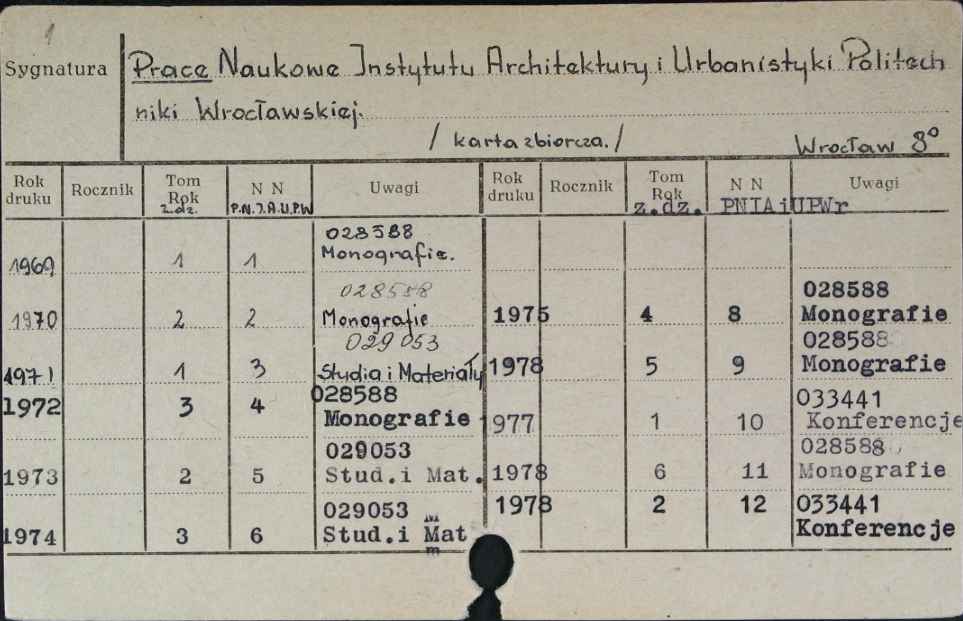 1
Sygnatura
Prace Naukowe Instytutu Architektury i Urbanistyki Politech
niki Wrocławskiej.
/ karta zbiorcza. /
Wrocław 8°
Rok druku Rocznik Tom Rok z.dz. N N P.N.I.A.U.P.W Uwagi
Rok druku Rocznik Tom Rok z.dz. N N PNIAiUPWr Uwagi
1969 1 1 028588 Monografie.
1970 2 2 028588 Monografie
1971 1 3 029053 Studia i Materiały
1972 3 4 028588 Monografie
1973 2 5 029053 Stud.i Mat.
1974 3 6 029053 Stud.i Mat
m
1975 4 8 028588 Monografie
1978 5 9 028588 Monografie
1977 1 10 033441 Konferencje
1978 6 11 028588 Monografie
1978 2 12 033441 Konferencje